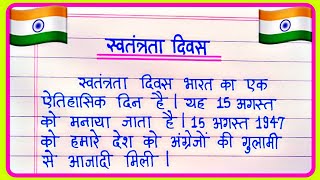 स्वतंत्रता दिवस
स्वतंत्रता दिवस भारत का एक
ऐतिहासिक दिन है | यह 15 अगस्त
को मनाया जाता है | 15 अगस्त 1947
को हमारे देश को अंग्रेजों की गुलामी
से आजादी मिली |